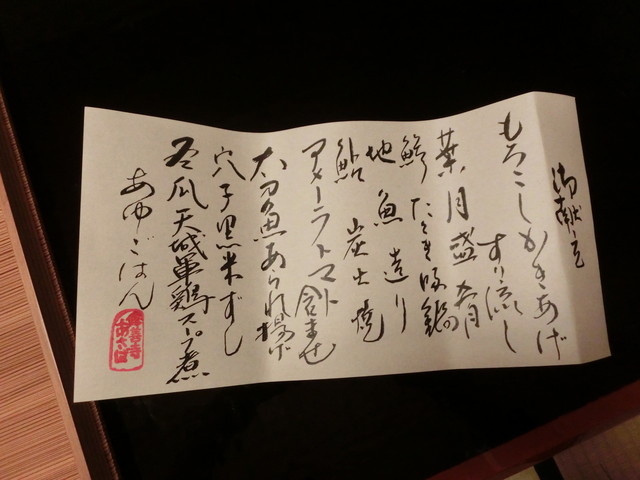 御献立
もろこしかきあげ
すり流し
葉月盛肴
鱧たたき吸鍋
地魚造り
鮎炭火焼
アメーラトマト合ませ
太刀魚あられ揚げ
穴子黒米ずし
冬瓜天城軍鶏スープ煮
あゆごはん